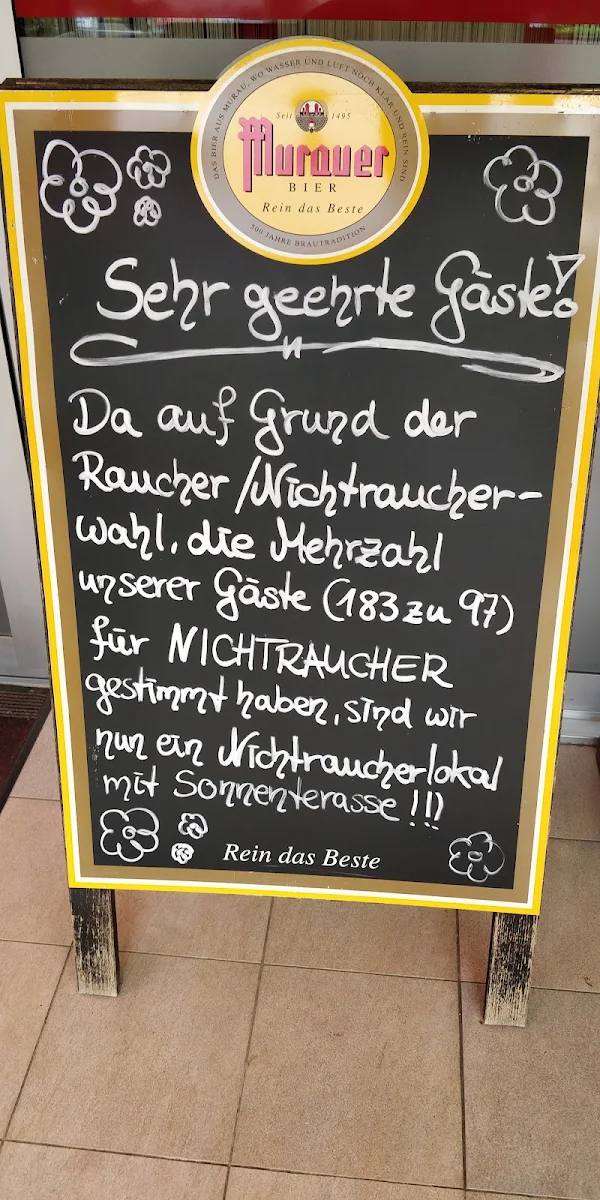 DAS BIER AUS MURAU, WO WASSER UND LUFT NOCH KLAR UND REIN SIND
Seit 1495
Murauer
BIER
Rein das Beste
500 JAHRE BRAUTRADITION
Sehr geehrte Gäste!
Da auf Grund der
Raucher/Nichtraucher-
wahl, die Mehrzahl
unserer Gäste (183 zu 97)
für NICHTRAUCHER
gestimmt haben, sind wir
nun ein Nichtraucherlokal
mit Sonnenterasse!!!)
Rein das Beste